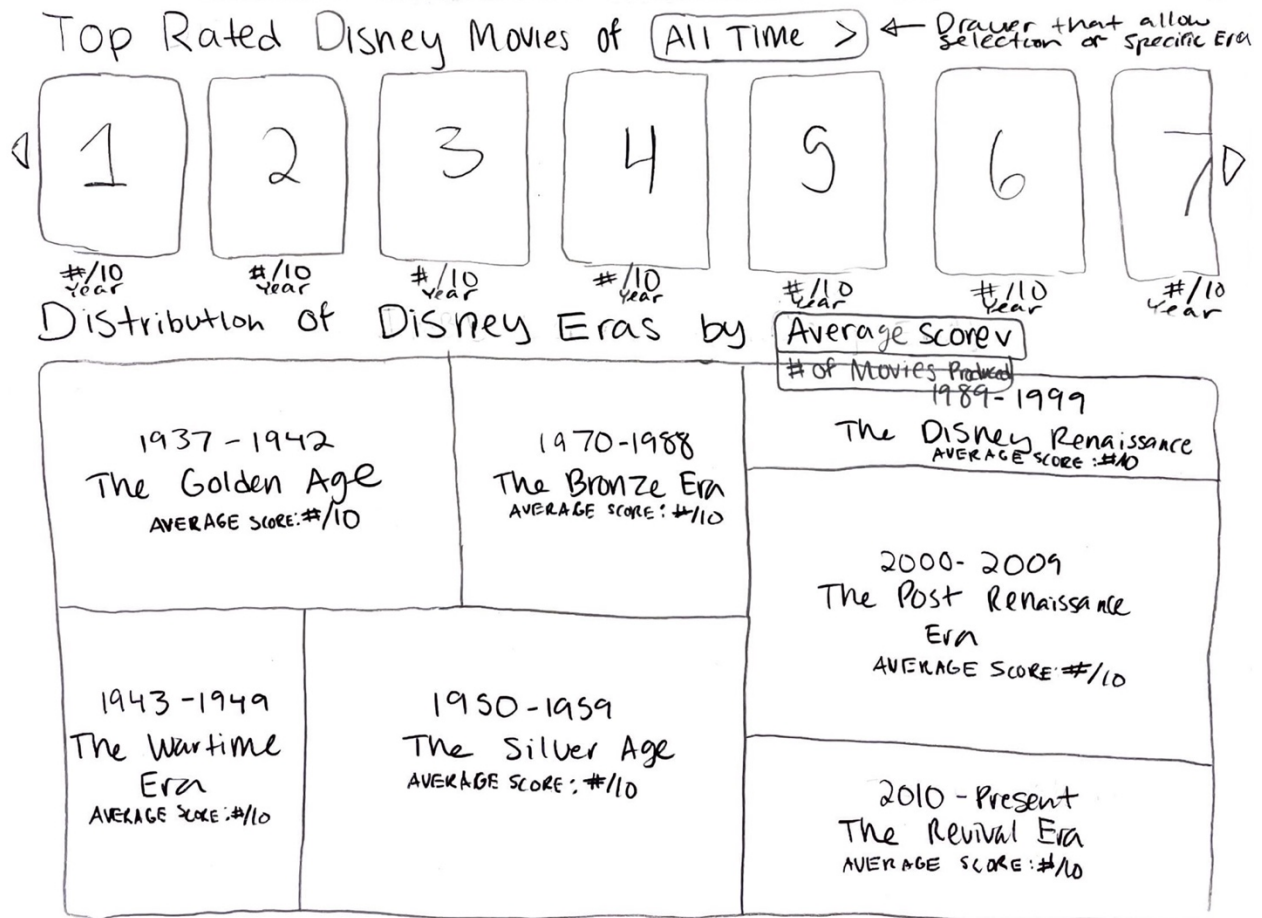 Top Rated Disney Movies of All Time >
← Drawer that allow
selection of specific Era
1
2
3
4
5
6
7
#/10
Year
#/10
Year
#/10
Year
#/10
Year
#/10
Year
#/10
Year
#/10
Year
Distribution of Disney Eras by Average score v
# of Movies Produced
1937-1942
The Golden Age
AVERAGE SCORE: #/10
1970-1988
The Bronze Era
AVERAGE SCORE: #/10
1989-1999
The Disney Renaissance
AVERAGE SCORE: #/10
2000-2009
The Post Renaissance
Era
AVERAGE SCORE: #/10
1943-1949
The Wartime
Era
AVERAGE SCORE: #/10
1950-1959
The Silver Age
AVERAGE SCORE: #/10
2010-Present
The Revival Era
AVERAGE SCORE: #/10